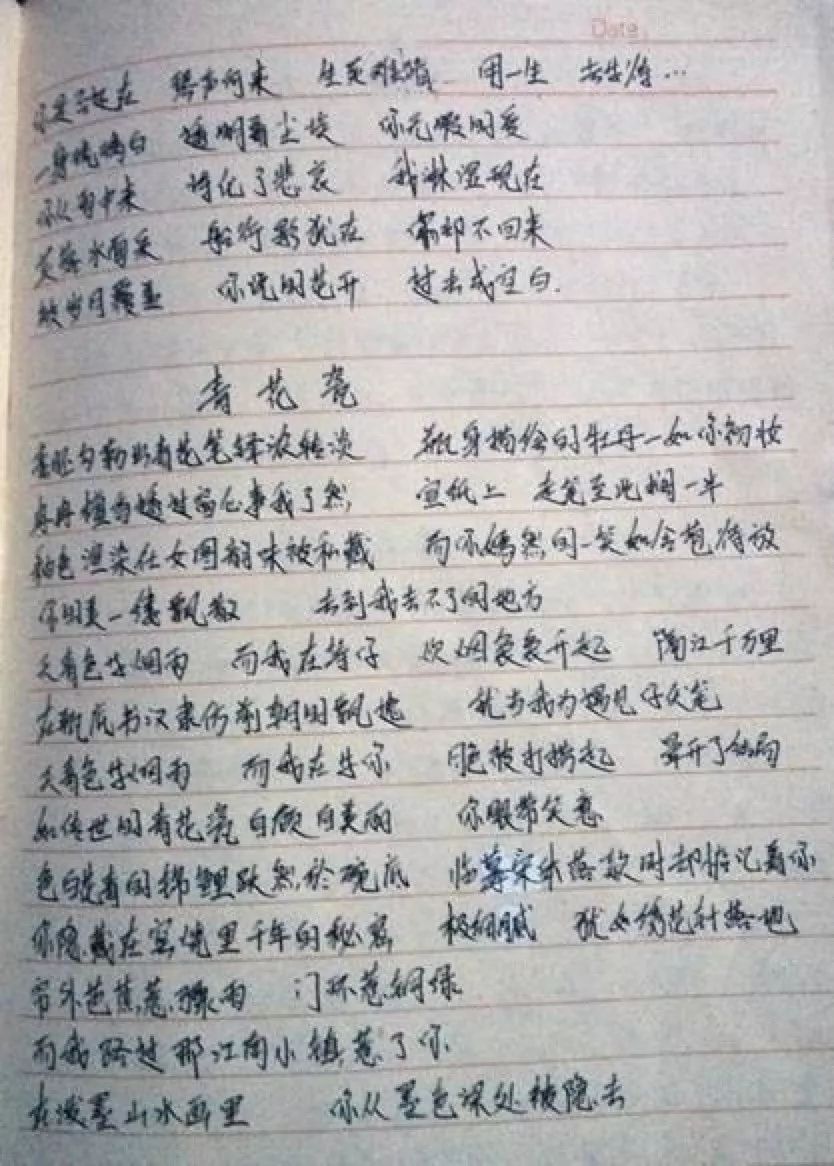 Date
琴声何来 生死难猜 用一生 去等待…
一身琉璃白 透明着尘埃 你无瑕的爱
你从雨中来 诗化了悲哀 我淋湿现在
芙蓉水面采 船行影犹在 你却不回来
被岁月覆盖 你说的花开 过去成空白.
青花瓷
素胚勾勒出青花笔锋浓转淡 瓶身描绘的牡丹一如你初妆
冉冉檀香透过窗心事我了然 宣纸上 走笔至此搁一半
釉色渲染仕女图韵味被私藏 而你嫣然的一笑如含苞待放
你的美一缕飘散 去到我去不了的地方
天青色等烟雨 而我在等你 炊烟袅袅升起 隔江千万里
在瓶底书汉隶仿前朝的飘逸 就当我为遇见你伏笔
天青色等烟雨 而我在等你 月色被打捞起 晕开了结局
如传世的青花瓷自顾自美丽 你眼带笑意
色白花青的锦鲤跃然於碗底 临摹宋体落款时却惦记着你
你隐藏在窑烧里千年的秘密 极细腻 犹如绣花针落地
帘外芭蕉惹骤雨 门环惹铜绿
而我路过那江南小镇惹了你
在泼墨山水画里 你从墨色深处被隐去